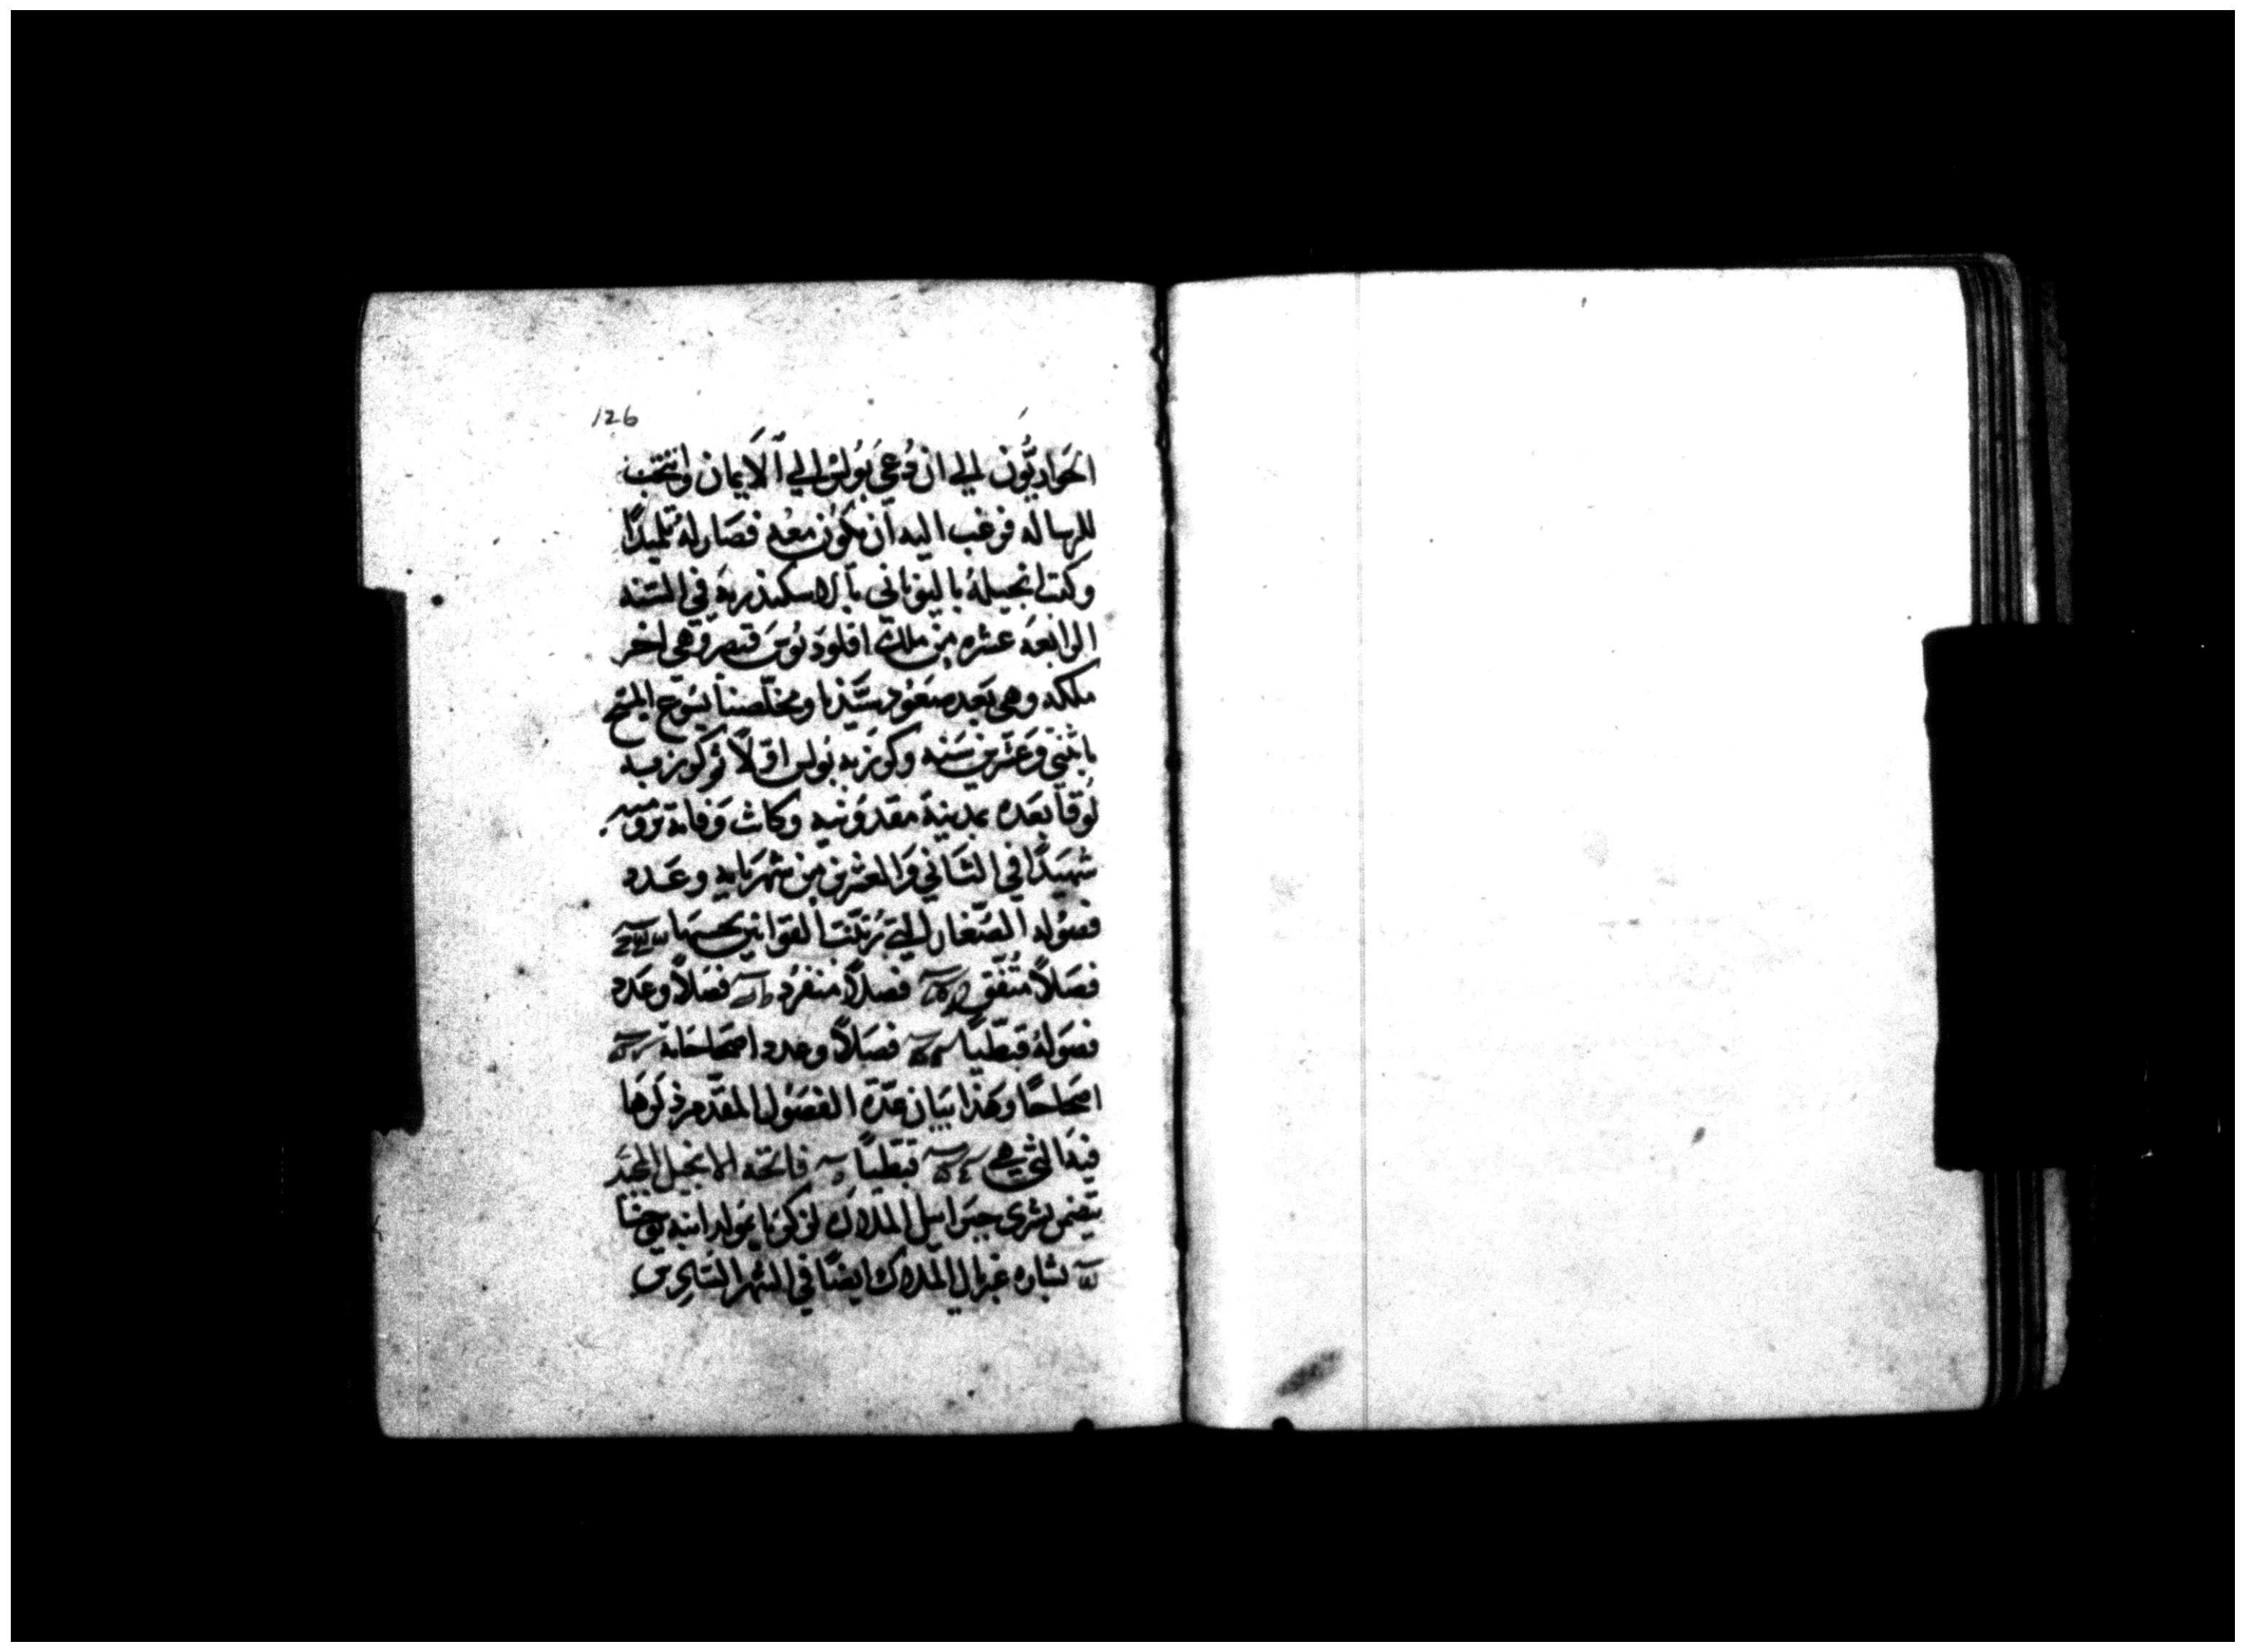 126
الحَواريُّون الي ان دُعيَ بَولس الي الاَيمان وانتخب
للرساله فرغب اليه ان يكون معه فصَار لهُ تلميذًا
وكتب انجيلهُ باليوناني بالاسكندريه في السَنه
الرابعَه عشره من ملك اقلودَيوس قيصر وهي اخر
ملكه وهي بَعد صعَود سَيّدنا ومخلّصنا يسَوع المسَيح
باثنتي وعَشرين سَنه وكرز به بَولس اوّلاً ثم كرز به
لُوقا بعَده بمدينة مقدَونيه وكانت وَفاته بروميه
شهيَدًا في الثاني وَالعَشرين من شهر بابه وعَدد
فصَوله الصَغار التي رُتبَت القوانين بحسبهَا
فصَلاً متفّق فصَلاً منفرد فصَلاً وعَدد
فصَولهُ قبطّيًا فصَلاً وعدد اصحَاحَاته
اصحَاحًا وهَذا بيَان عدّة الفصَول المقدّم ذكرَهَا
فيهَا التي هي قبَطّيًا فاتحَه الانجيل المجيد
يتضمن بشري جبَراييل الملاك لزكريَا بمَولد ابنه يوحَنا
بشاره غبريال الملاك ايضًا في الشهر السَادس